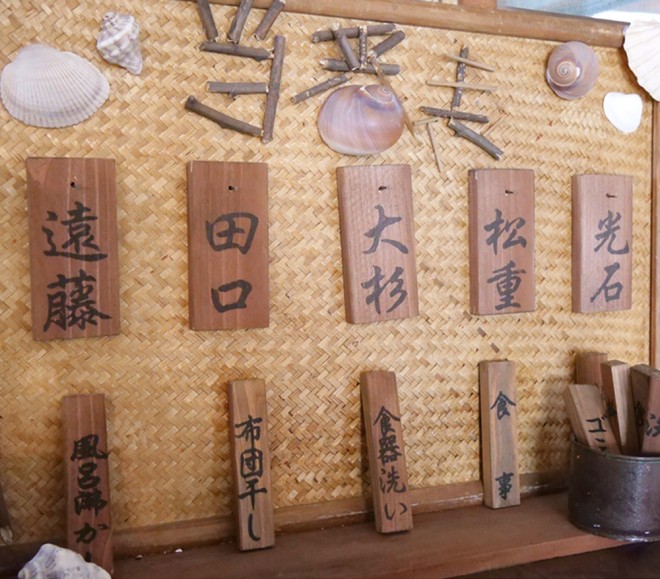 当番表
遠藤
田口
大杉
松重
光石
風呂沸かし
布団干し
食器洗い
食事
ゴミ